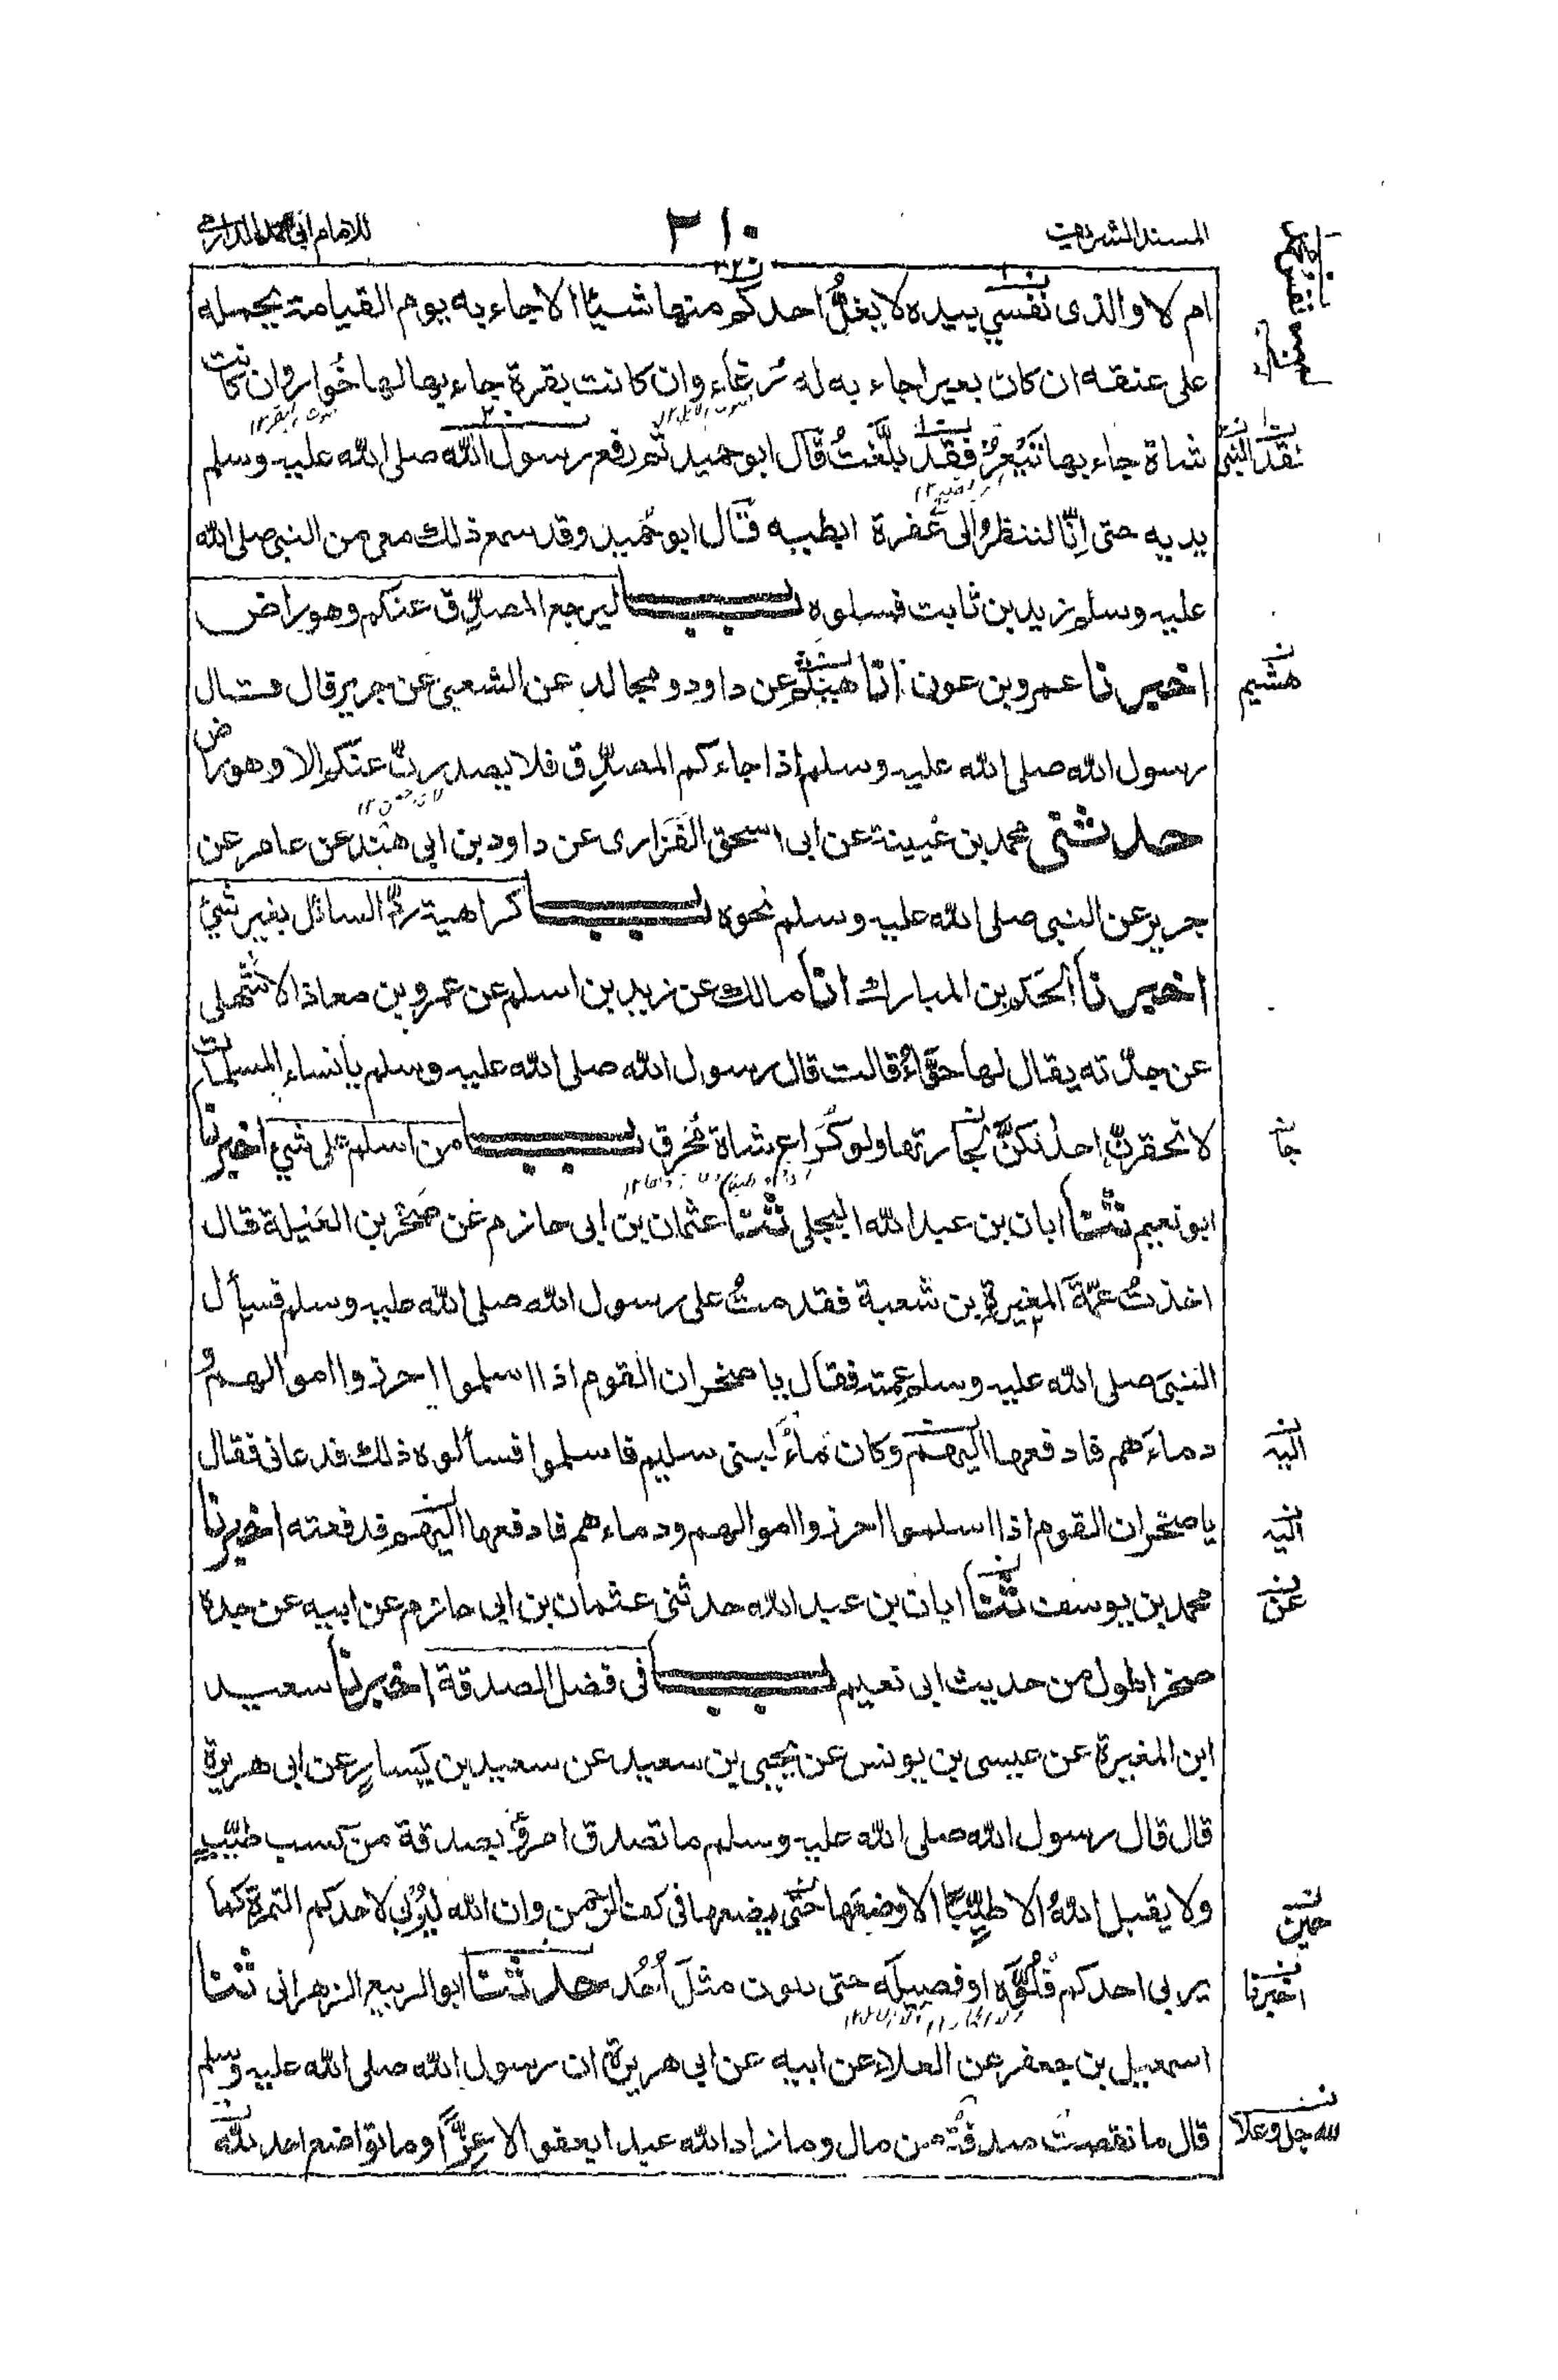 المسند الشريف
٢١٠
للامام ابي محمد الدارمي
ام لا والذى نفسي بيده لا يغلُّ احدكم منها شيئا الا جاء به يوم القيامة يحمله
على عنقه ان كان بعيرا جاء به له رغاء وان كانت بقرة جاء بها لها خوار وان كانت
شاة جاء بها تيعر فقد بلّغتُ قال ابو حميد ثم رفع رسول الله صلى الله عليه وسلم
يديه حتى انّا لننظر الى عفرة ابطيه قال ابو حميد وقد سمع ذلك معى من النبى صلى الله
عليه وسلم زيد بن ثابت فسلوه باب ليرجع المصدّق عنكم وهو راض
اخبرنا عمرو بن عون انا هيثم عن داود ومجالد عن الشعبى عن جرير قال قال
رسول الله صلى الله عليه وسلم اذا جاءكم المصدّق فلا يصدرنّ عنكم الا وهو راض
حدثنى محمد بن عيينة عن ابى اسحق الفزارى عن داود بن ابى هند عن عامر عن
جرير عن النبى صلى الله عليه وسلم نحوه باب كراهية ردّ السائل بغير شيئ
اخبرنا الحكم بن المبارك انا مالك عن زيد بن اسلم عن عمرو بن معاذ الاشهلى
عن جدّته يقال لها حوّاء قالت قال رسول الله صلى الله عليه وسلم يا نساء المسلمات
لا تحقرنّ احداكنّ لجارتها ولو كراع شاة محرق باب من اسلم على شيئ اخبرنا
ابو نعيم ثنا ابان بن عبد الله البجلى ثنا عثمان بن ابى حازم عن صخر بن العَيلة قال
اخذتُ عمّةَ المغيرة بن شعبة فقدمتُ على رسول الله صلى الله عليه وسلم فسأل
النبى صلى الله عليه وسلم عمته فقال يا صخر ان القوم اذا اسلموا احرزوا اموالهم و
دماءهم فادفعها اليهم وكان ماءٌ لبنى سليم فاسلموا فسألوه ذلك فدعانى فقال
يا صخر ان القوم اذا اسلموا احرزوا اموالهم ودماءهم فادفعها اليهم فدفعته اخبرنا
محمد بن يوسف ثنا ابان بن عبد الله حدثنى عثمان بن ابى حازم عن ابيه عن جده
صخر اطول من حديث ابى نعيم باب فى فضل الصدقة اخبرنا سعيد
ابن المغيرة عن عيسى بن يونس عن يحيى بن سعيد عن سعيد بن يسار عن ابى هريرة
قال قال رسول الله صلى الله عليه وسلم ما تصدق امرؤ بصدقة من كسب طيّب
ولا يقبل الله الا طيّبا الا وضعها حتى يضعها فى كف الرحمن وان الله ليُربى لاحدكم التمرة كما
يربى احدكم فلُوّه او فصيله حتى تكون مثل أُحُد حدثنا ابو الربيع الزهرانى ثنا
اسمعيل بن جعفر عن العلاء عن ابيه عن ابى هريرة ان رسول الله صلى الله عليه وسلم
قال ما نقصت صدقة من مال وما زاد الله عبدا بعفو الا عزّا وما تواضع احد لله
فقد النبى
هشيم
جا
اليه
اليه
عن
حين
اخبرنا
لله جل وعلا